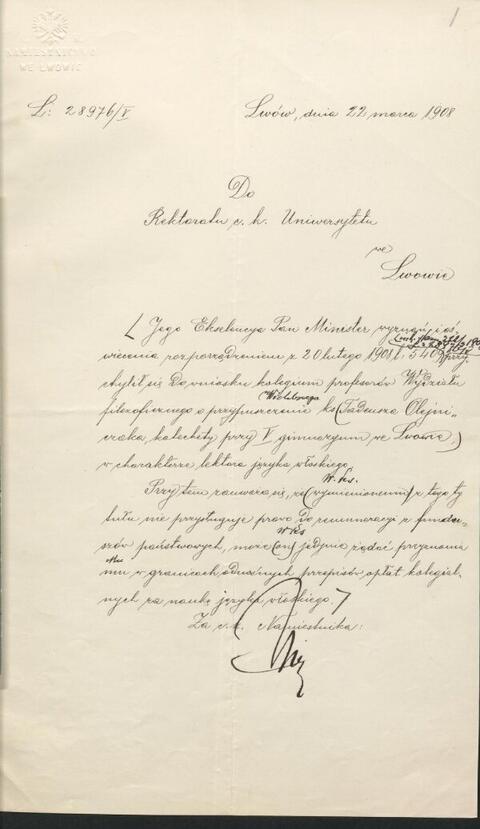 1
NAMIESTNICTWO
WE LWOWIE
L: 28976/V
Lwów, dnia 22 marca 1908
Do
Rektoratu c. k. Uniwersytetu
we
Lwowie
Jego Ekscelencya Pan Minister wyznań i oś-
wiecenia rozporządzeniem z 20 lutego 1908 l. 5409 przy-
chylił się do wniosku kolegium profesorów Wydziału
Wielebnego
filozoficznego o przypuszczenie ks (Tadeusza Olejni-
czaka, katechety przy V gimnazyum we Lwowie,)
w charakterze lektora języka włoskiego.
W. ks.
Przytem zauważa się, że (wymienionemu) z tego ty-
tułu nie przysługuje prawo do remuneracyi z fundu-
W ks
szów państwowych, może (on) jedynie żądać przyzna
mu w granicach odnośnych przepisów opłat kolegial-
nych za naukę języka włoskiego.
Za c. k. Namiestnika: